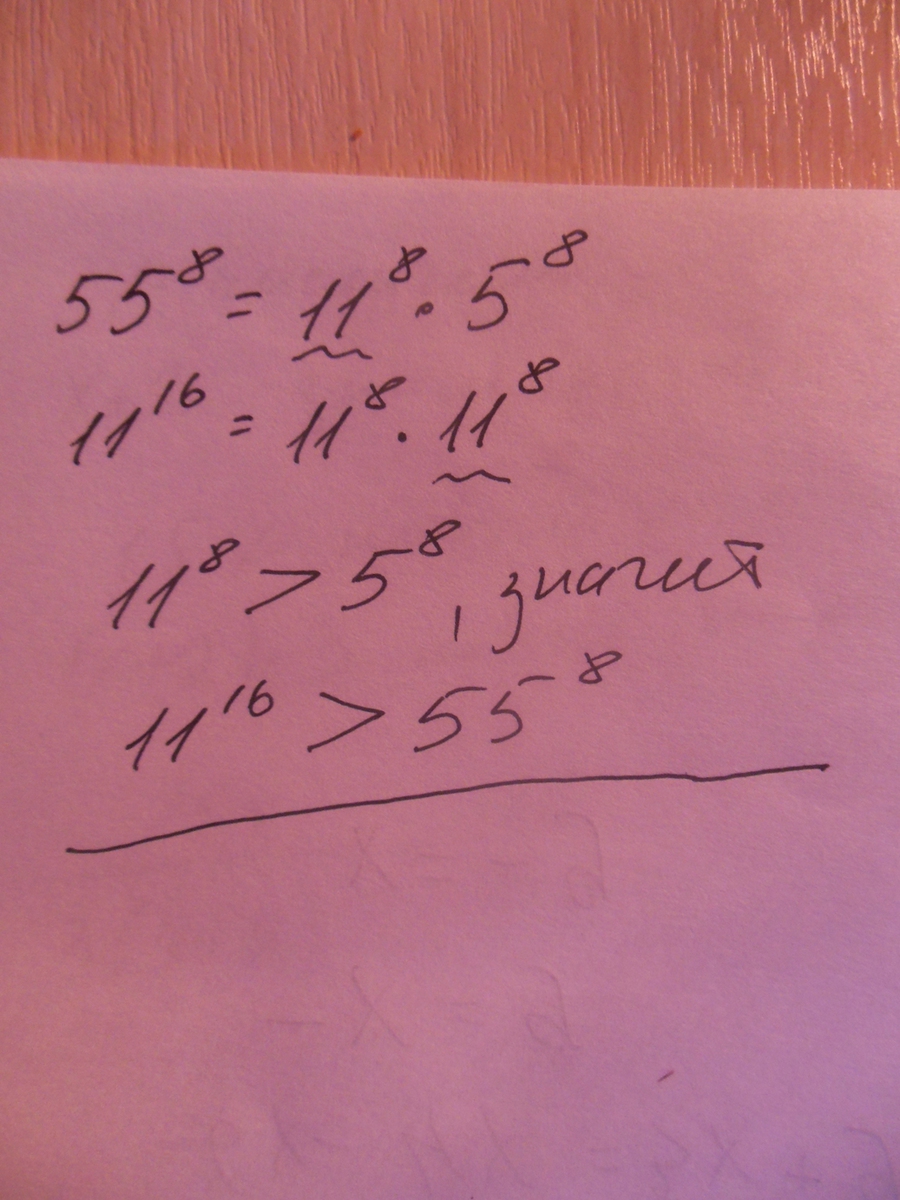 55⁸ = 11⁸ · 5⁸
11¹⁶ = 11⁸ · 11⁸
11⁸ > 5⁸, значит
11¹⁶ > 55⁸